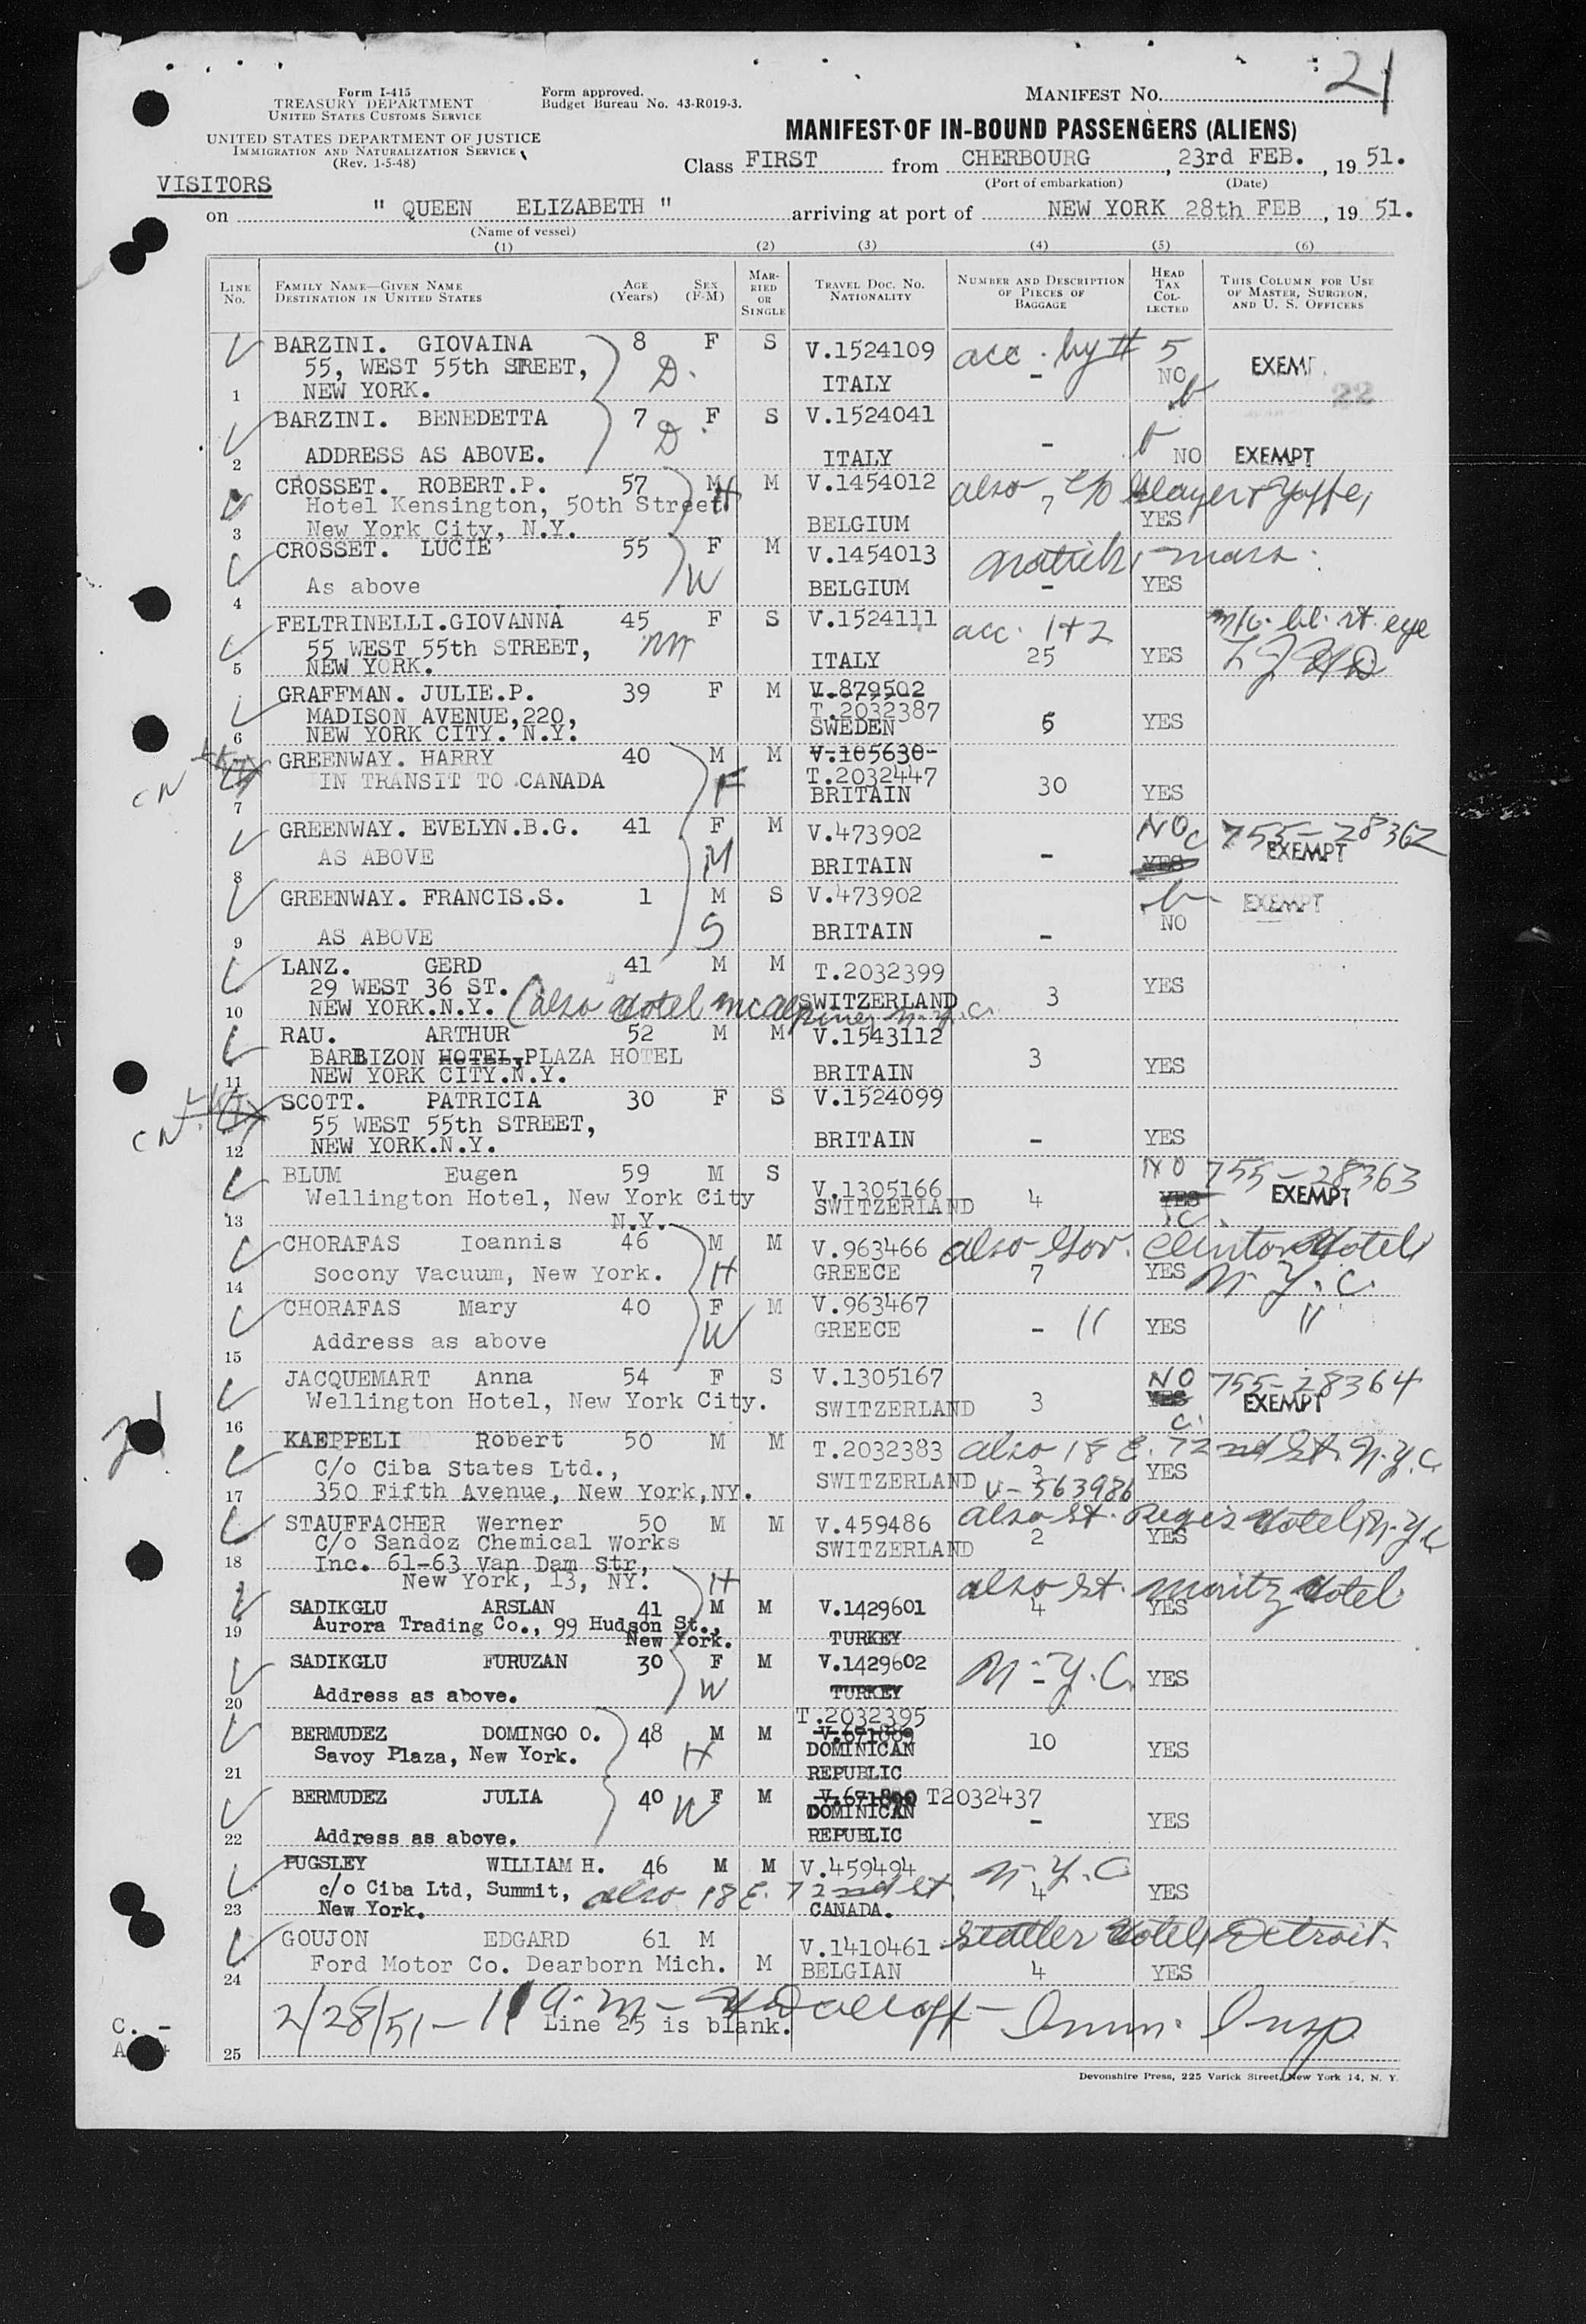 21
Form I-415
TREASURY DEPARTMENT
UNITED STATES CUSTOMS SERVICE
UNITED STATES DEPARTMENT OF JUSTICE
IMMIGRATION AND NATURALIZATION SERVICE
(Rev. 1-5-48)
Form approved.
Budget Bureau No. 43-R019-3.
MANIFEST NO.
MANIFEST OF IN-BOUND PASSENGERS (ALIENS)
Class FIRST from CHERBOURG, 23rd FEB., 19 51.
(Port of embarkation) (Date)
VISITORS
on " QUEEN ELIZABETH " arriving at port of NEW YORK 28th FEB, 19 51.
(Name of vessel)
(1) (2) (3) (4) (5) (6)
LINE NO. FAMILY NAME—GIVEN NAME DESTINATION IN UNITED STATES AGE (Years) SEX (F-M) MARRIED OR SINGLE TRAVEL DOC. NO. NATIONALITY NUMBER AND DESCRIPTION OF PIECES OF BAGGAGE HEAD TAX COLLECTED THIS COLUMN FOR USE OF MASTER, SURGEON, AND U. S. OFFICERS
BARZINI. GIOVAINA 8 F S V.1524109 acc. by # 5
55, WEST 55th STREET, D. - NO EXEMPT
1 NEW YORK. ITALY 22
BARZINI. BENEDETTA 7 F S V.1524041
D -
2 ADDRESS AS ABOVE. ITALY NO EXEMPT
CROSSET. ROBERT.P. 57 M M V.1454012 also c/o Slayer & Yaffe,
Hotel Kensington, 50th Street H 7
3 New York City, N.Y. BELGIUM YES
CROSSET. LUCIE 55 F M V.1454013 Natick, Mass.
4 As above W BELGIUM - YES
FELTRINELLI.GIOVANNA 45 F S V.1524111 acc. 1+2 bl. rt. eye
55 WEST 55th STREET,
5 NEW YORK. ITALY 25 YES
GRAFFMAN. JULIE.P. 39 F M V.879502
MADISON AVENUE,220, T.2032387
6 NEW YORK CITY. N.Y. SWEDEN 5 YES
GREENWAY. HARRY 40 M M V.105630-
CN IN TRANSIT TO CANADA F T.2032447
7 BRITAIN 30 YES
GREENWAY. EVELYN.B.G. 41 F M V.473902 NO c 755-28362
8 AS ABOVE M BRITAIN - YES EXEMPT
GREENWAY. FRANCIS.S. 1 M S V.473902 EXEMPT
9 AS ABOVE S BRITAIN - NO
LANZ. GERD 41 M M T.2032399
29 WEST 36 ST. YES
10 NEW YORK.N.Y. (also Hotel McAlpine, N.Y.C. SWITZERLAND 3
RAU. ARTHUR 52 M M V.1543112
BARBIZON HOTEL, PLAZA HOTEL 3
11 NEW YORK CITY.N.Y. BRITAIN YES
SCOTT. PATRICIA 30 F S V.1524099
CN 55 WEST 55th STREET,
12 NEW YORK.N.Y. BRITAIN - YES
BLUM Eugen 59 M S NO 755-28363
Wellington Hotel, New York City V.1305166 4 YES EXEMPT
13 N.Y. SWITZERLAND c
CHORAFAS Ioannis 46 M M V.963466 also Gov. Clinton Hotel
14 Socony Vacuum, New York. H GREECE 7 YES N.Y.C.
CHORAFAS Mary 40 F M V.963467
15 Address as above W GREECE - " YES "
JACQUEMART Anna 54 F S V.1305167 NO 755-28364
16 Wellington Hotel, New York City. SWITZERLAND 3 YES EXEMPT
c
KAEPPELI Robert 50 M M T.2032383 also 18 E. 72nd St. N.Y.C.
C/o Ciba States Ltd., SWITZERLAND 3 YES
17 350 Fifth Avenue, New York,NY. V-563986
STAUFFACHER Werner 50 M M V.459486 also St. Regis Hotel, N.Y.C
C/o Sandoz Chemical Works SWITZERLAND 2 YES
18 Inc. 61-63 Van Dam Str,
New York, 13, NY. H also St. Moritz Hotel
SADIKGLU ARSLAN 41 M M V.1429601 4 YES
19 Aurora Trading Co., 99 Hudson St.,
New York. TURKEY
SADIKGLU FURUZAN 30 F M V.1429602 N.Y.C. YES
20 Address as above. W TURKEY -
T.2032395
BERMUDEZ DOMINGO O. 48 M M V.671889
Savoy Plaza, New York. H DOMINICAN 10 YES
21 REPUBLIC
BERMUDEZ JULIA 40 F M V.671890 T2032437
W DOMINICAN - YES
22 Address as above. REPUBLIC
PUGSLEY WILLIAM H. 46 M M V.459494 N.Y.C
c/o Ciba Ltd, Summit, also 18 E. 72nd St. 4 YES
23 New York. CANADA.
GOUJON EDGARD 61 M V.1410461 Statler Hotel, Detroit.
24 Ford Motor Co. Dearborn Mich. M BELGIAN 4 YES
2/28/51 - 11 a.m - Imm. Insp
Line 25 is blank.
C. -
25
Devonshire Press, 225 Varick Street, New York 14, N. Y.